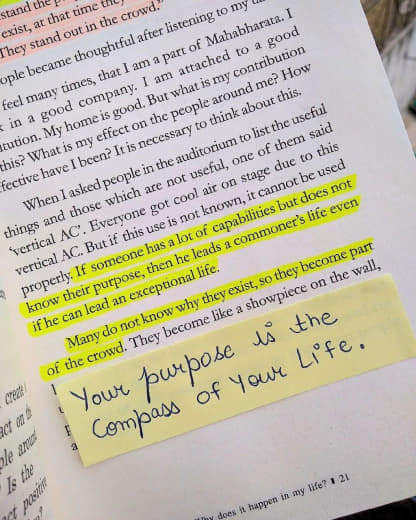 stand the
exist, at that time they
They stand out in the crowd.
ople became thoughtful after listening to my
feel many times, that I am a part of Mahabharata. I
in a good company. I am attached to a good
itution. My home is good. But what is my contribution
this? What is my effect on the people around me? How
ffective have I been? It is necessary to think about this.
When I asked people in the auditorium to list the useful
things and those which are not useful, one of them said
'vertical AC'. Everyone got cool air on stage due to this
vertical AC. But if this use is not known, it cannot be used
properly. If someone has a lot of capabilities but does not
know their purpose, then he leads a commoner's life even
if he can lead an exceptional life.
Many do not know why they exist, so they become part
of the crowd. They become like a showpiece on the wall,
Your purpose is the
Compass of Your Life.
create
act on
ple around
Is the
ct positive
Why does it happen in my life? 21